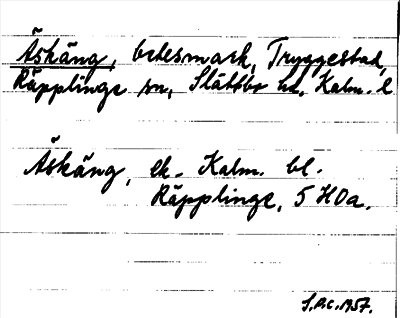 Äskäng, betesmark, Tryggestad,
Räpplinge sn, Slättbo hd, Kalm. l
Äskäng, ek. Kalm. bl.
Räpplinge, 5 H0a.
S.P.C. 1957.